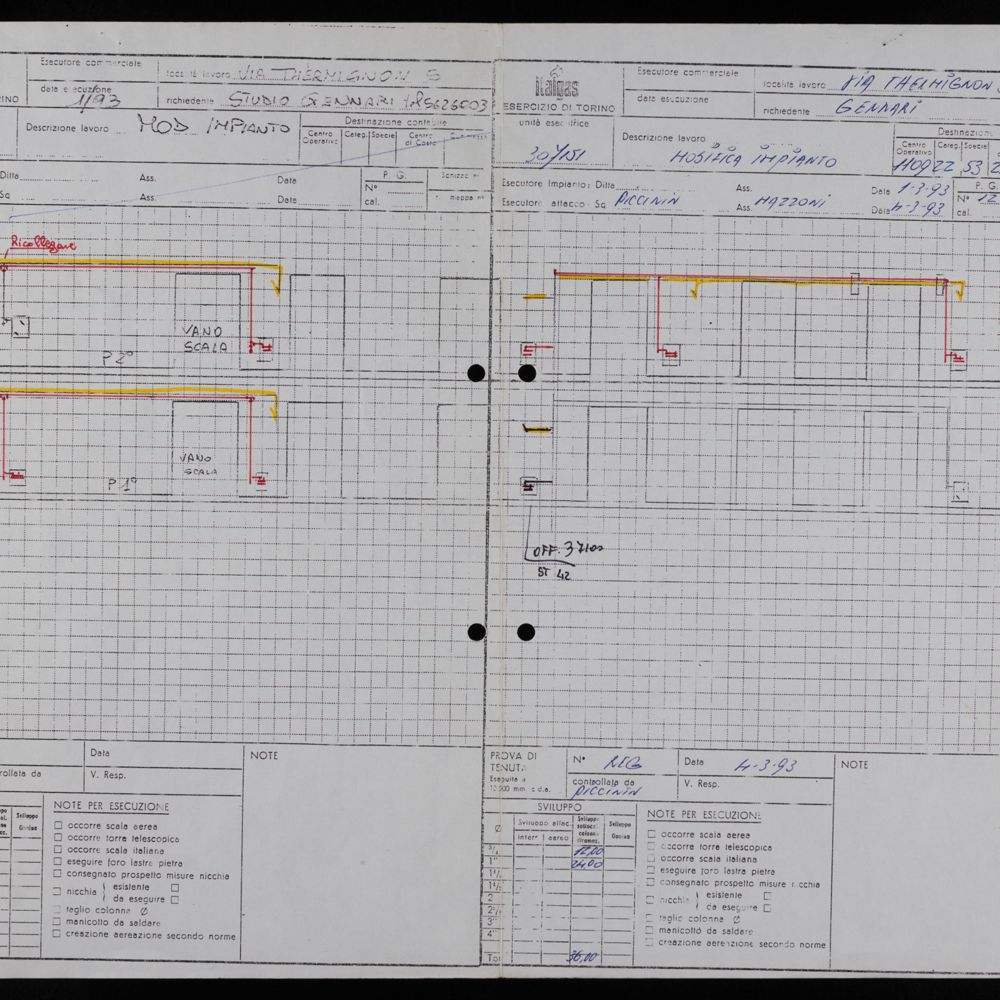 Esecutore commerciale
località lavoro VIA THERMIGNON
data esecuzione
1/93
richiedente STUDIO GENNARI
Descrizione lavoro MOD IMPIANTO
Destinazione contabile
Centro Operativo Categ. Specie Centro di Costo
Ditta Ass. Data
Sq Ass. Data
P. G.
N°
cal.
Ricollegare
VANO
SCALA
P 2°
VANO
SCALA
P 1°
Data
V. Resp.
NOTE
NOTE PER ESECUZIONE
occorre scala aerea
occorre torre telescopica
occorre scala italiana
eseguire foro lastra pietra
consegnato prospetto misure nicchia
nicchia esistente
da eseguire
taglio colonna Ø
manicotto da saldare
creazione aereazione secondo norme
italgas
ESERCIZIO DI TORINO
unità esecutrice
30/151
Esecutore commerciale
località lavoro VIA THERMIGNON
data esecuzione
richiedente GENNARI
Descrizione lavoro
MODIFICA IMPIANTO
Centro Operativo Categ. Specie
53
Esecutore Impianto: Ditta Ass. Data 1-3-93
Esecutore attacco: Sq PICCININ Ass. MAZZONI Data 4-3-93
P. G.
N° 12
cal.
OFF. 3
ST 42
PROVA DI TENUTA
Eseguita a
N° NEG
Data 4-3-93
controllata da
PICCININ
V. Resp.
NOTE
SVILUPPO
Ø Sviluppo allac. Sviluppo
interr. aereo
3/4 12,00
1" 24,00
1"1/4
1"1/2
2"
2"1/2
3"
4"
Tot 36,00
NOTE PER ESECUZIONE
occorre scala aerea
occorre torre telescopica
occorre scala italiana
eseguire foro lastra pietra
consegnato prospetto misure nicchia
nicchia esistente
da eseguire
taglio colonna Ø
manicotto da saldare
creazione aereazione secondo norme